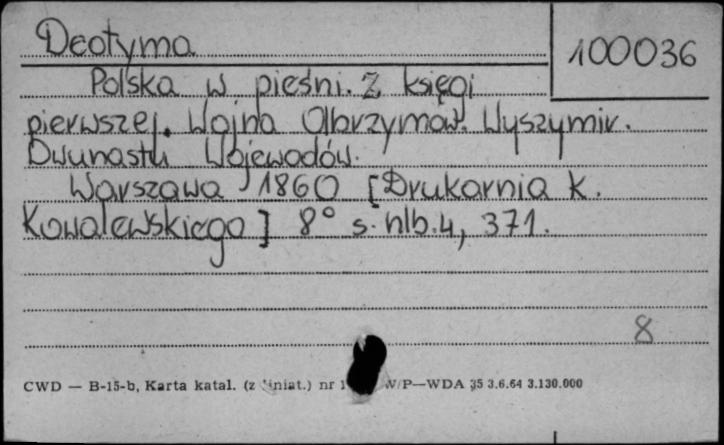 Deotyma
100036
Polska w pieśni. Z księgi
pierwszej. Wojna Olbrzymów. Wyszymir.
Dwunastu Wojewodów.
Warszawa 1860 [Drukarnia K.
Kowalewskiego] 8° s. nlb. 4, 371.
8
CWD — B-15-b, Karta katal. (z liniat.) nr 1 W/P—WDA 35 3.6.64 3.130.000